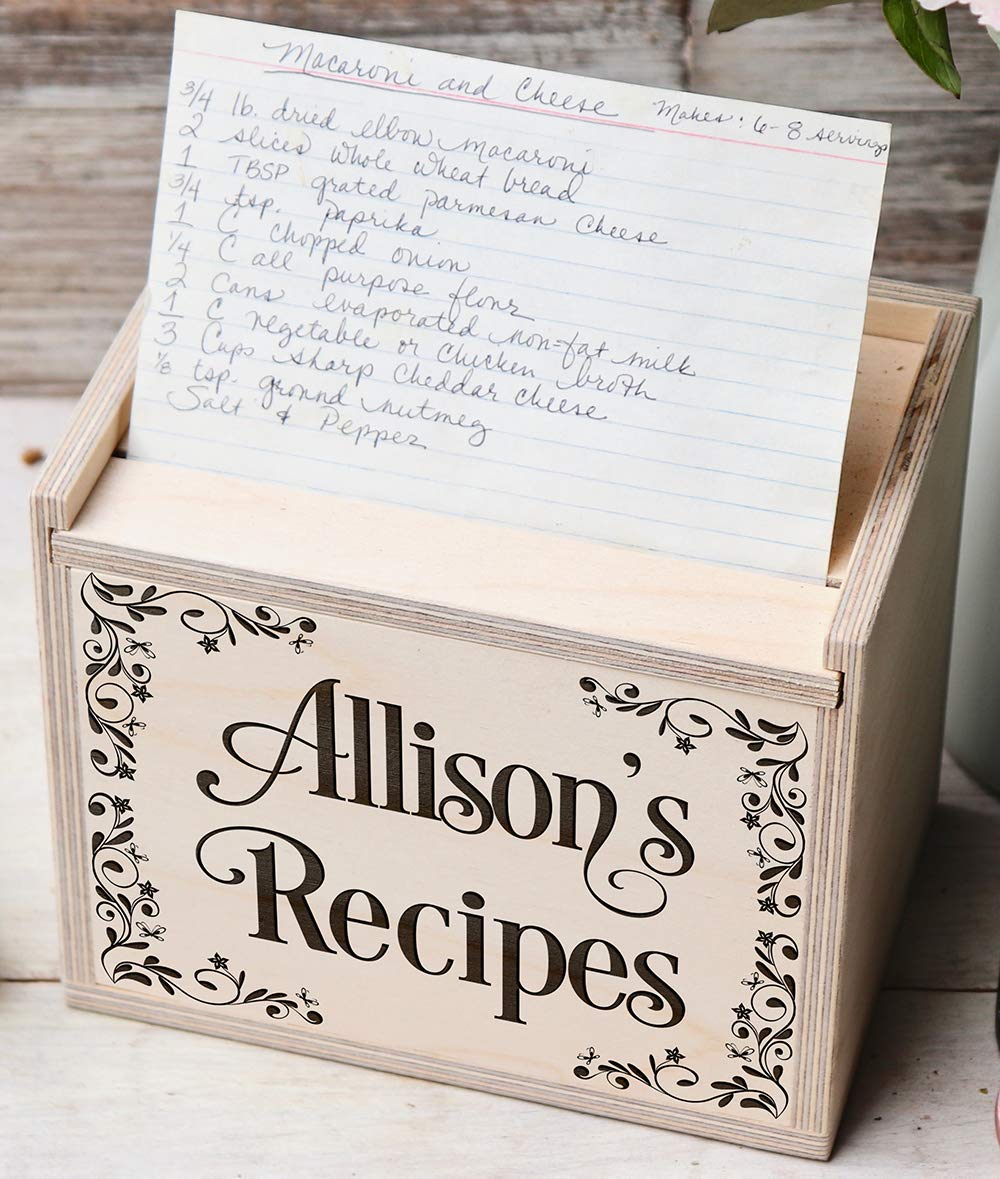 Macaroni and Cheese Makes: 6-8 servings
3/4 lb. dried elbow macaroni
2 slices whole wheat bread
1 TBSP grated parmesan cheese
3/4 tsp. paprika
1 C chopped onion
1/4 C all purpose flour
2 cans evaporated non-fat milk
1 C vegetable or chicken broth
3 Cups sharp cheddar cheese
1/8 tsp. ground nutmeg
Salt & Pepper
Allison's
Recipes